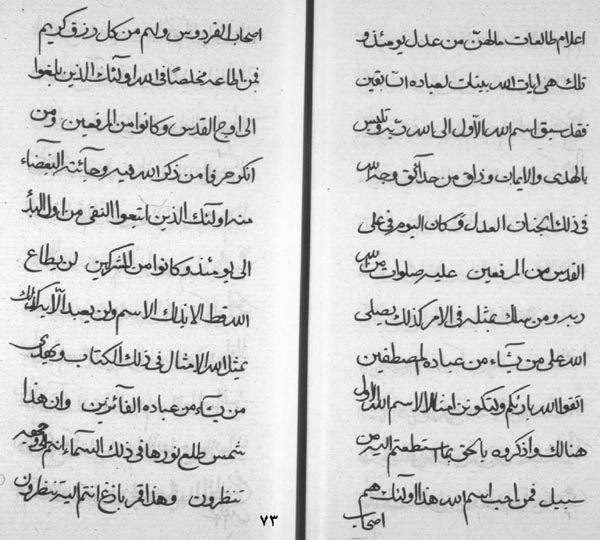 اعلام طالعات مالهن من عدل يومئذ و
تلك هى ايات الله بينات لعباده ان يقين
فقد سبق اسم الله الاول الى الله ربه و تلبس
بالهدى والايمان و ذاق من حدائق وجه الله
فى ذلك الجنات العدل و كان اليوم فى على
القدس من المرفعين عليه صلوات من الله
ربه و من سلك بمثله فى الامر كذلك يصلى
الله على من يشاء من عباده المصطفين
اتقوا الله بارئكم ولتكونن امثال الاسم الله الاول
هنالك واذكروه بالحق بما استطعتم اليه من
سبيل فمن احب اسم الله هذا اولئك هم
اصحاب
اصحاب الفردوس ولهم من كل رزق كريم
فمن اطاعه مخلصًا فى الله اولئك الذين بلغوا
الى اوج القدس وكانوا من المرفعين ومن
انكر حرفا من ذكر الله فيه وجائته البغضاء
منه اولئك الذين اتبعوا النفى من اول البدأ
الى يومئذ وكانوا من المشركين لن يطاع
الله قط الا بذلك الاسم ولن يعبد الا بذكره كذلك
يمثل الله الامثال فى ذلك الكتاب ويهدى
من يشاء من عباده الفائزين وان هذا
شمس طلع نورها فى ذلك السماء انتم الى وجهه
تنظرون وهذا قمر باذغ انتم اليه تنظرون
٧٣